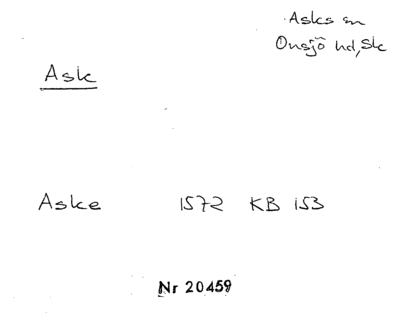 Asks sn
Onsjö hd, Sk
Ask
Aske 1572 KB 153
Nr 20459